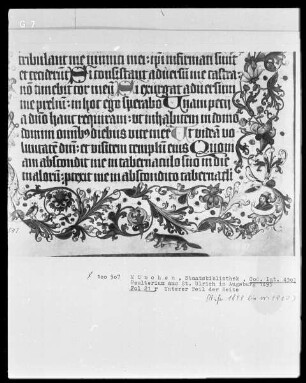 tribulant me inimici mei: ipi infirmati sunt
et ceciderunt Si consistant adversum me castra:
non timebit cor meum Si exurgat adversum
me prelium: in hoc ego sperabo Unam petij
a dno hanc requiram: ut inhabitem in domo
domini omnibus diebus vite mee Ut videam vo
luntatē dni: et visitem templum eius Quoniam
abscondit me in tabernaculo suo in die
malorū: protexit me in abscondito tabernaculi
Rno 507 München, Staatsbibliothek, Cod. lat. 4301
Psalterium aus St. Ulrich in Augsburg 1495
Fol 21 r Unterer Teil der Seite